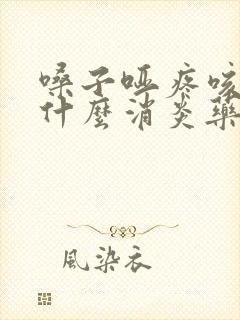 嗓子哑疼咳
什麽消炎藥
風染衣